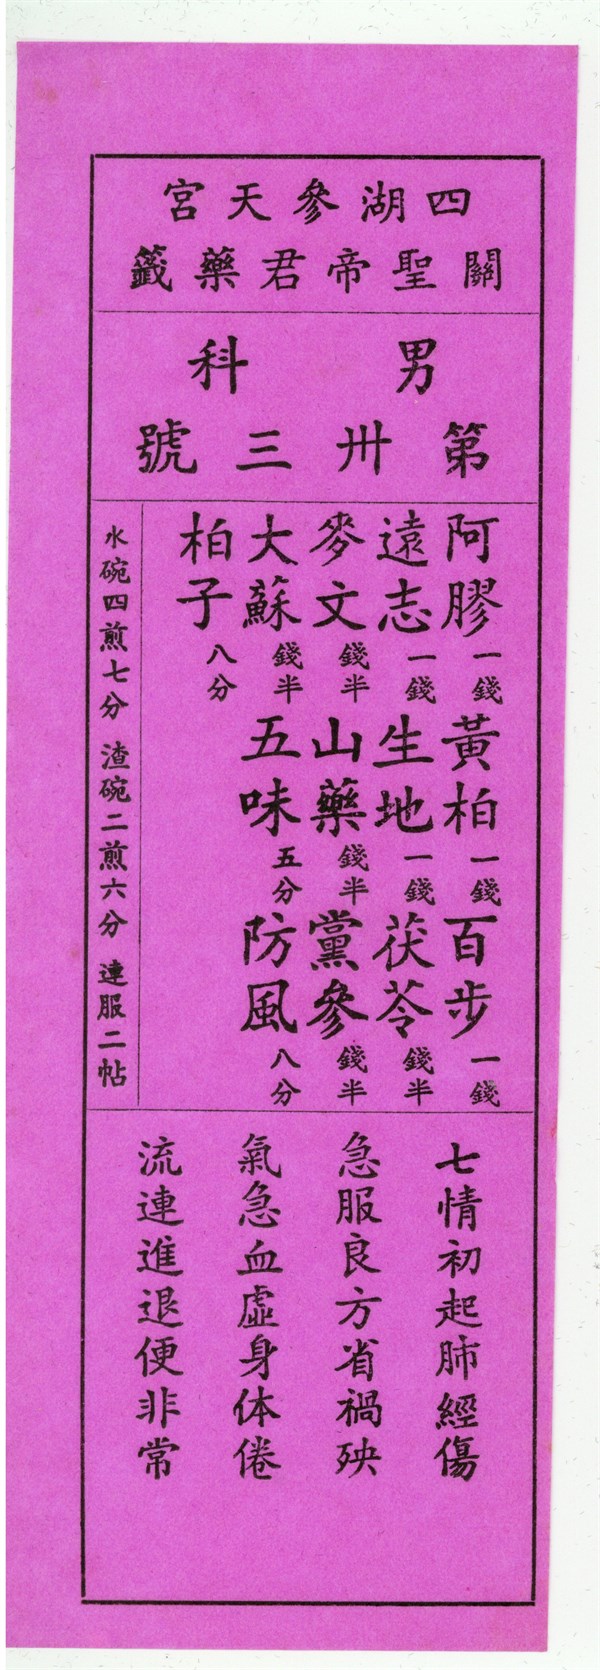 四湖參天宮
關聖帝君藥籤
男科
第卅三號
阿膠一錢 黃柏一錢 百步一錢
遠志一錢 生地一錢 茯苓錢半
麥文錢半 山藥錢半 黨參錢半
大蘇錢半 五味五分 防風八分
柏子八分
水碗四煎七分 渣碗二煎六分 連服二帖
七情初起肺經傷
急服良方省禍殃
氣急血虛身体倦
流連進退便非常